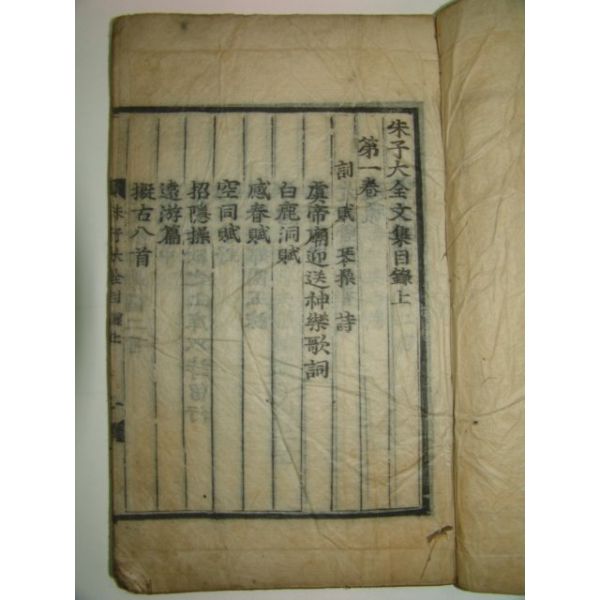 朱子大全文集目錄上
第一卷
詞 賦 琴操 詩
虞帝廟迎送神樂歌詞
白鹿洞賦
感春賦
空同賦
招隱操
遠游篇
擬古八首
朱子大全目錄上 一